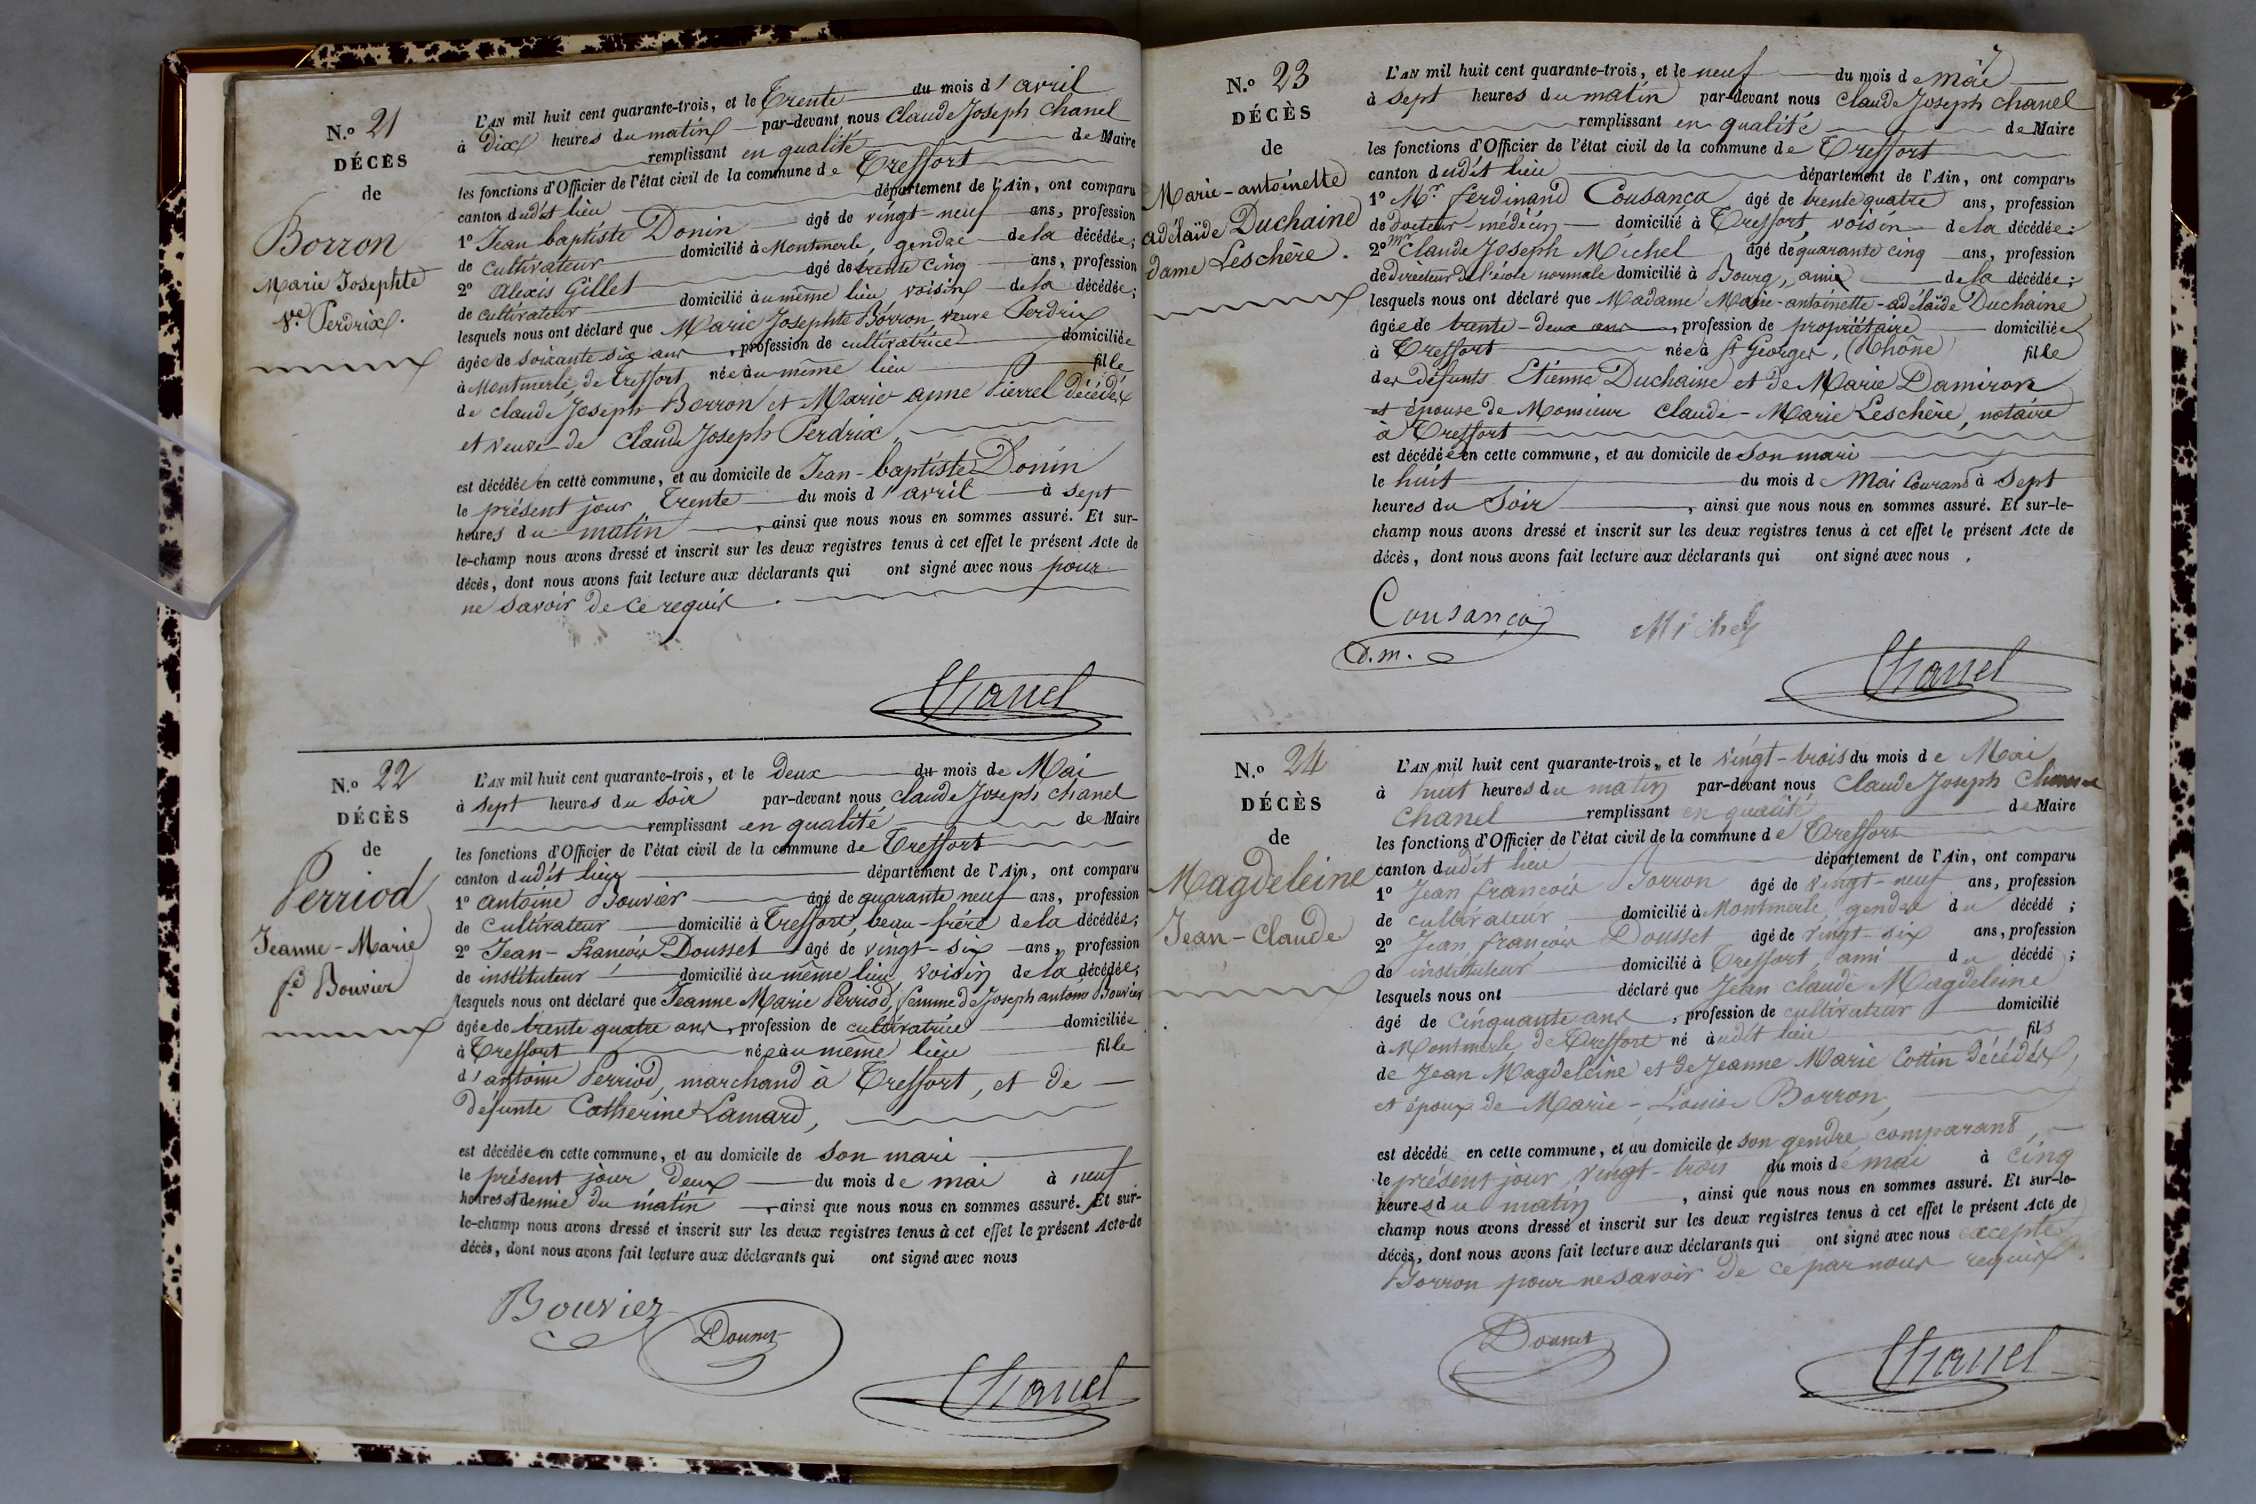 N.º 21
DÉCÈS
de
Borron
Marie Josephte
Vᵉ Perdrix.
L'AN mil huit cent quarante-trois, et le Trente du mois d'avril
à Dix heures du matin par-devant nous Claude Joseph Chanel
remplissant en qualité de Maire
les fonctions d'Officier de l'état civil de la commune de Treffort
canton dudit lieu département de l'Ain, ont comparu
1º Jean baptiste Donin âgé de vingt-neuf ans, profession
de cultivateur domicilié à Montmerle, gendre de la décédée;
2º Alexis Gillet âgé de trente cinq ans, profession
de cultivateur domicilié au même lieu voisin de la décédée;
lesquels nous ont déclaré que Marie Josephte Borron veuve Perdrix
âgée de soixante six ans, profession de cultivatrice domiciliée
à Montmerle, de Treffort née au même lieu fille
de Claude Joseph Borron et Marie anne Pierrel décédés
et veuve de Claude Joseph Perdrix
est décédée en cette commune, et au domicile de Jean-baptiste Donin
le présent jour Trente du mois d'avril à sept
heures du matin, ainsi que nous nous en sommes assuré. Et sur-
le-champ nous avons dressé et inscrit sur les deux registres tenus à cet effet le présent Acte de
décès, dont nous avons fait lecture aux déclarants qui ont signé avec nous pour
ne savoir de ce requis.
Chanel
N.º 22
DÉCÈS
de
Perriod
Jeanne-Marie
fᵉ Bouvier
L'AN mil huit cent quarante-trois, et le deux du mois de Mai
à sept heures du soir par-devant nous Claude Joseph Chanel
remplissant en qualité de Maire
les fonctions d'Officier de l'état civil de la commune de Treffort
canton dudit lieu département de l'Ain, ont comparu
1º antoine Bouvier âgé de quarante neuf ans, profession
de cultivateur domicilié à Treffort, beau-frère de la décédée;
2º Jean-francois Dousset âgé de vingt-six ans, profession
de instituteur domicilié au même lieu, voisin de la décédée;
lesquels nous ont déclaré que Jeanne Marie Perriod, femme de Joseph antoine Bouvier
âgée de trente quatre ans, profession de cultivatrice domiciliée
à Treffort née au même lieu fille
d'antoine Perriod, marchand à Treffort, et de
defunte Catherine Lamard,
est décédée en cette commune, et au domicile de son mari
le présent jour Deux du mois de mai à neuf
heures et demie du matin, ainsi que nous nous en sommes assuré. Et sur-
le-champ nous avons dressé et inscrit sur les deux registres tenus à cet effet le présent Acte de
décès, dont nous avons fait lecture aux déclarants qui ont signé avec nous
Bouvier
Dousset
Chanel
7
N.º 23
DÉCÈS
de
Marie-antoinette
adélaïde Duchaine
dame Leschère.
L'AN mil huit cent quarante-trois, et le neuf du mois de mai
à sept heures du matin par-devant nous Claude Joseph Chanel
remplissant en qualité de Maire
les fonctions d'Officier de l'état civil de la commune de Treffort
canton dudit lieu département de l'Ain, ont comparu
1º Mr ferdinand Cousança âgé de trente quatre ans, profession
de docteur-médécin domicilié à Treffort, voisin de la décédée;
2º Mr Claude Joseph Michel âgé de quarante cinq ans, profession
de Directeur de l'école normale domicilié à Bourg, ami de la décédée;
lesquels nous ont déclaré que Madame Marie-antoinette-adélaïde Duchaine
âgée de trente-deux ans, profession de propriétaire domiciliée
à Treffort née à St Georges, (Rhône) fille
des défunts Etienne Duchaine et de Marie Damiron
et épouse de Monsieur Claude-Marie Leschère, notaire
à Treffort
est décédée en cette commune, et au domicile de son mari
le huit du mois de Mai Courant à sept
heures du Soir, ainsi que nous nous en sommes assuré. Et sur-le-
champ nous avons dressé et inscrit sur les deux registres tenus à cet effet le présent Acte de
décès, dont nous avons fait lecture aux déclarants qui ont signé avec nous.
Cousança
d.m.
Michel
Chanel
N.º 24
DÉCÈS
de
Magdeleine
Jean-Claude
L'AN mil huit cent quarante-trois, et le vingt-trois du mois de Mai
à huit heures du matin par-devant nous Claude Joseph
Chanel remplissant en qualité de Maire
les fonctions d'Officier de l'état civil de la commune de Treffort
canton dudit lieu département de l'Ain, ont comparu
1º Jean francois Borron âgé de vingt-neuf ans, profession
de cultivateur domicilié à Montmerle, gendre du décédé;
2º Jean françois Dousset âgé de vingt-six ans, profession
de instituteur domicilié à Treffort, ami du décédé;
lesquels nous ont déclaré que Jean Claude Magdeleine
âgé de Cinquante ans, profession de cultivateur domicilié
à Montmerle, de Treffort né audit lieu fils
de Jean Magdeleine et de Jeanne Marie Cottin décédés,
et époux de Marie-Louise Borron,
est décédé en cette commune, et au domicile de son gendre comparant,
le présent jour vingt-trois du mois de mai à cinq
heures du matin, ainsi que nous nous en sommes assuré. Et sur-le-
champ nous avons dressé et inscrit sur les deux registres tenus à cet effet le présent Acte de
décès, dont nous avons fait lecture aux déclarants qui ont signé avec nous excepté
Borron pour ne savoir de ce par nous requis.
Dousset
Chanel